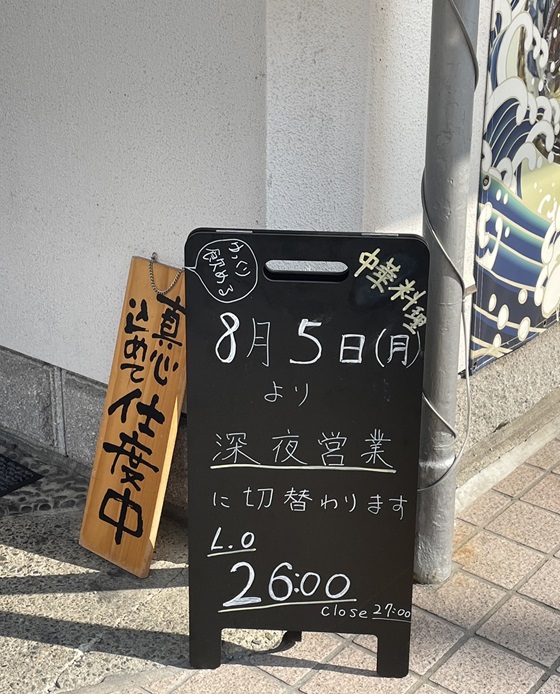 ゆっくり
飲める
中華料理
8月5日(月)
より
深夜営業
に切替わります
L.O
26:00
close 27:00
真心
込めて
仕度中